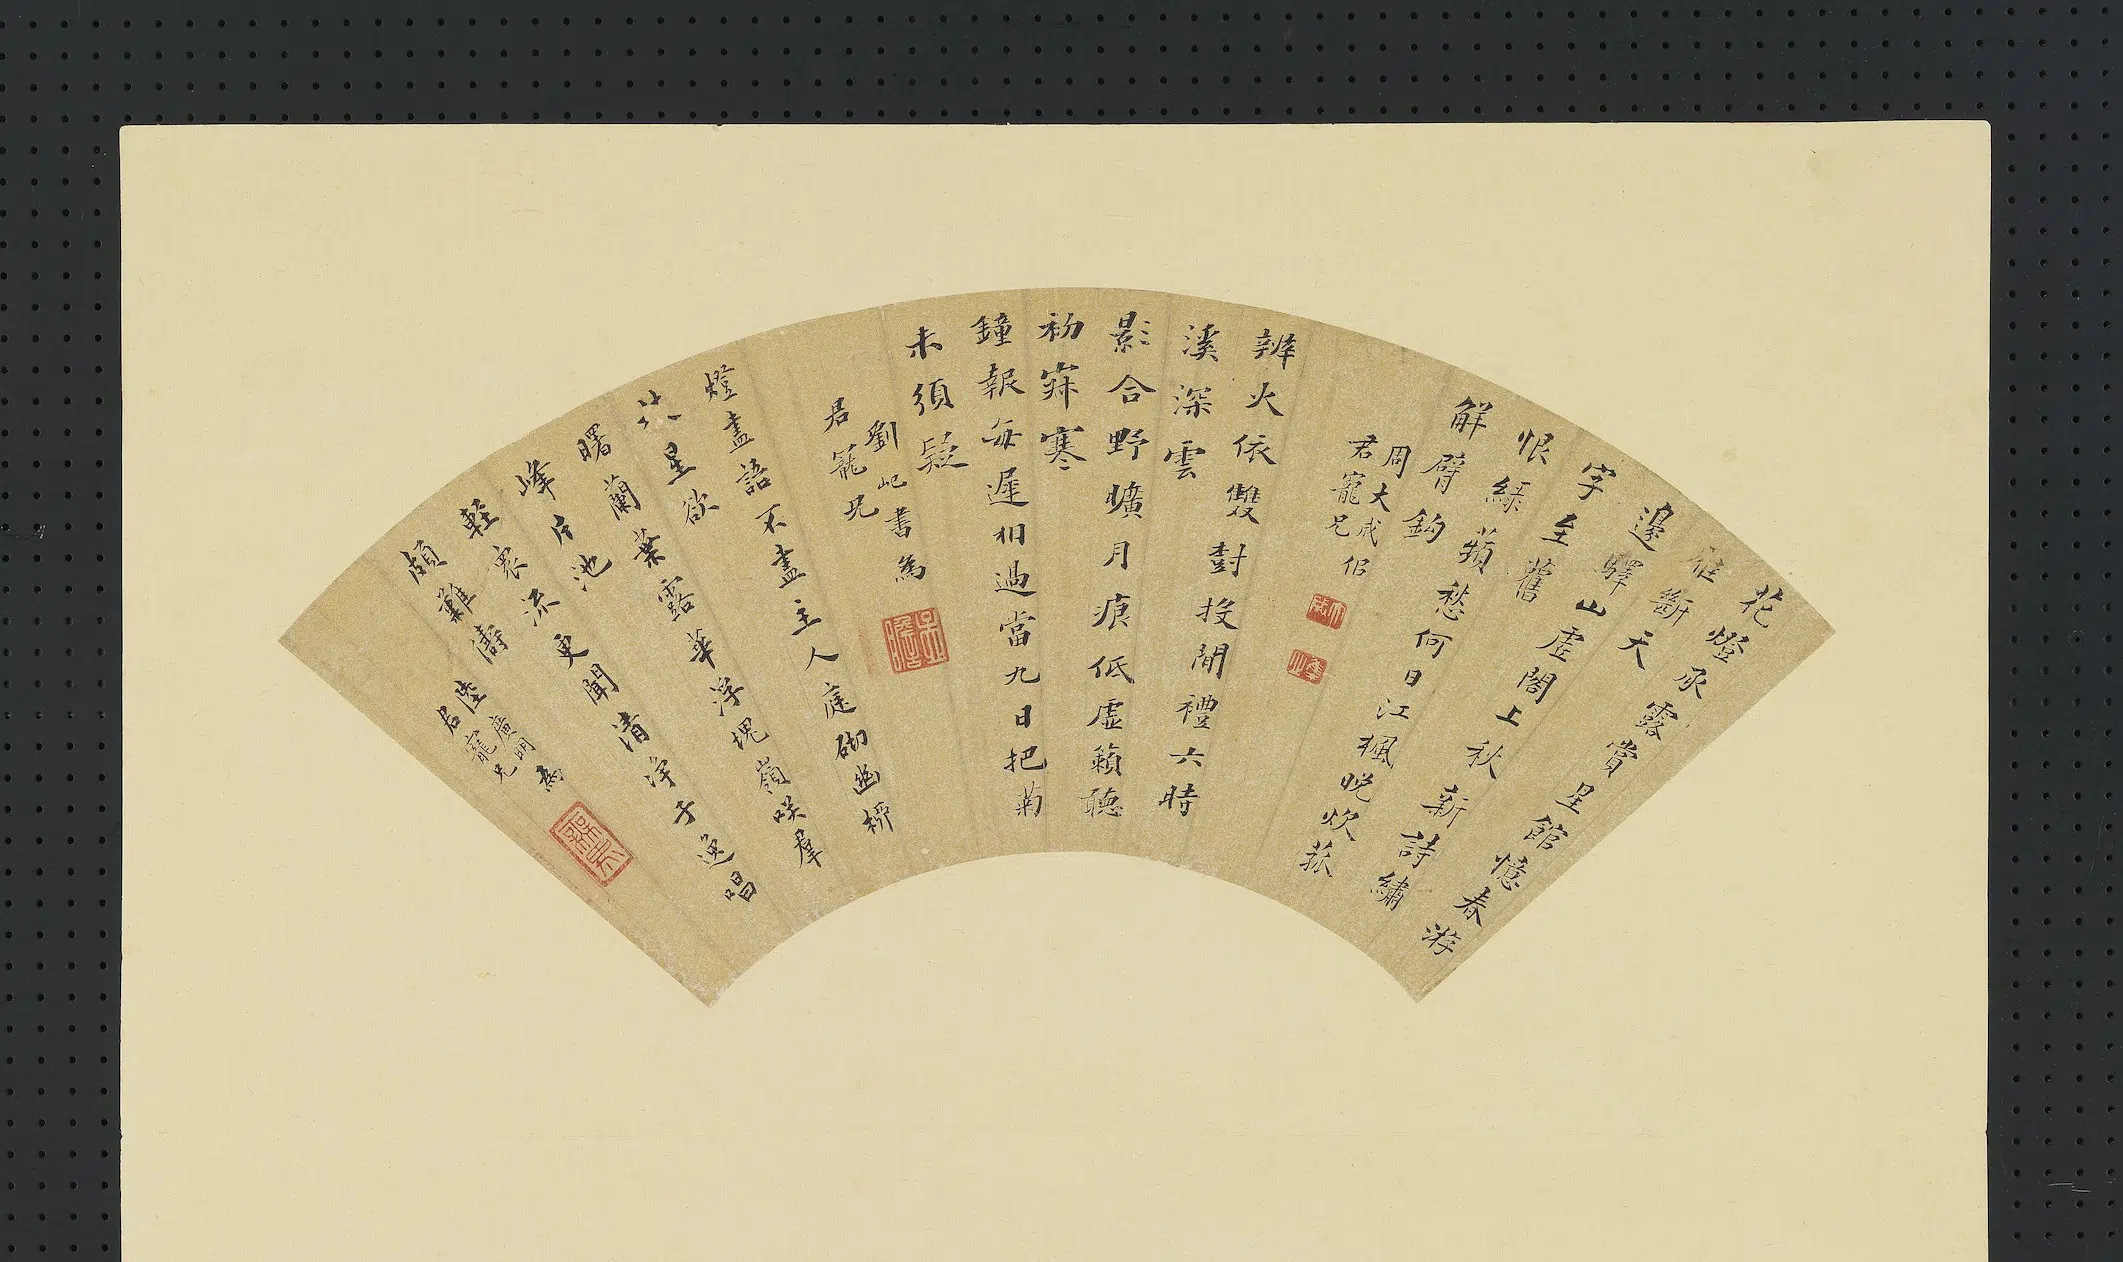 花燈承露賞星館憶春游
雁斷天
邊驛山虛閣上秋新詩繡
字至舊
恨綠蘋愁何日江楓晚炊菰
解臂鈎
周大成侶
君寵兄
辨火依雙樹投閒禮六時
溪深雲
影合野曠月痕低虛籟聽
初寐寒
鐘報每遲相過當九日把菊
未須疑
劉屺書為
君寵兄
燈盡語不盡主人庭砌幽柳
枝星欲
曙蘭葉露華浮塊嶺咲羣
峰片池
輕衆流更聞清淨子逸唱
頗難儔
陸廣明為
君寵兄